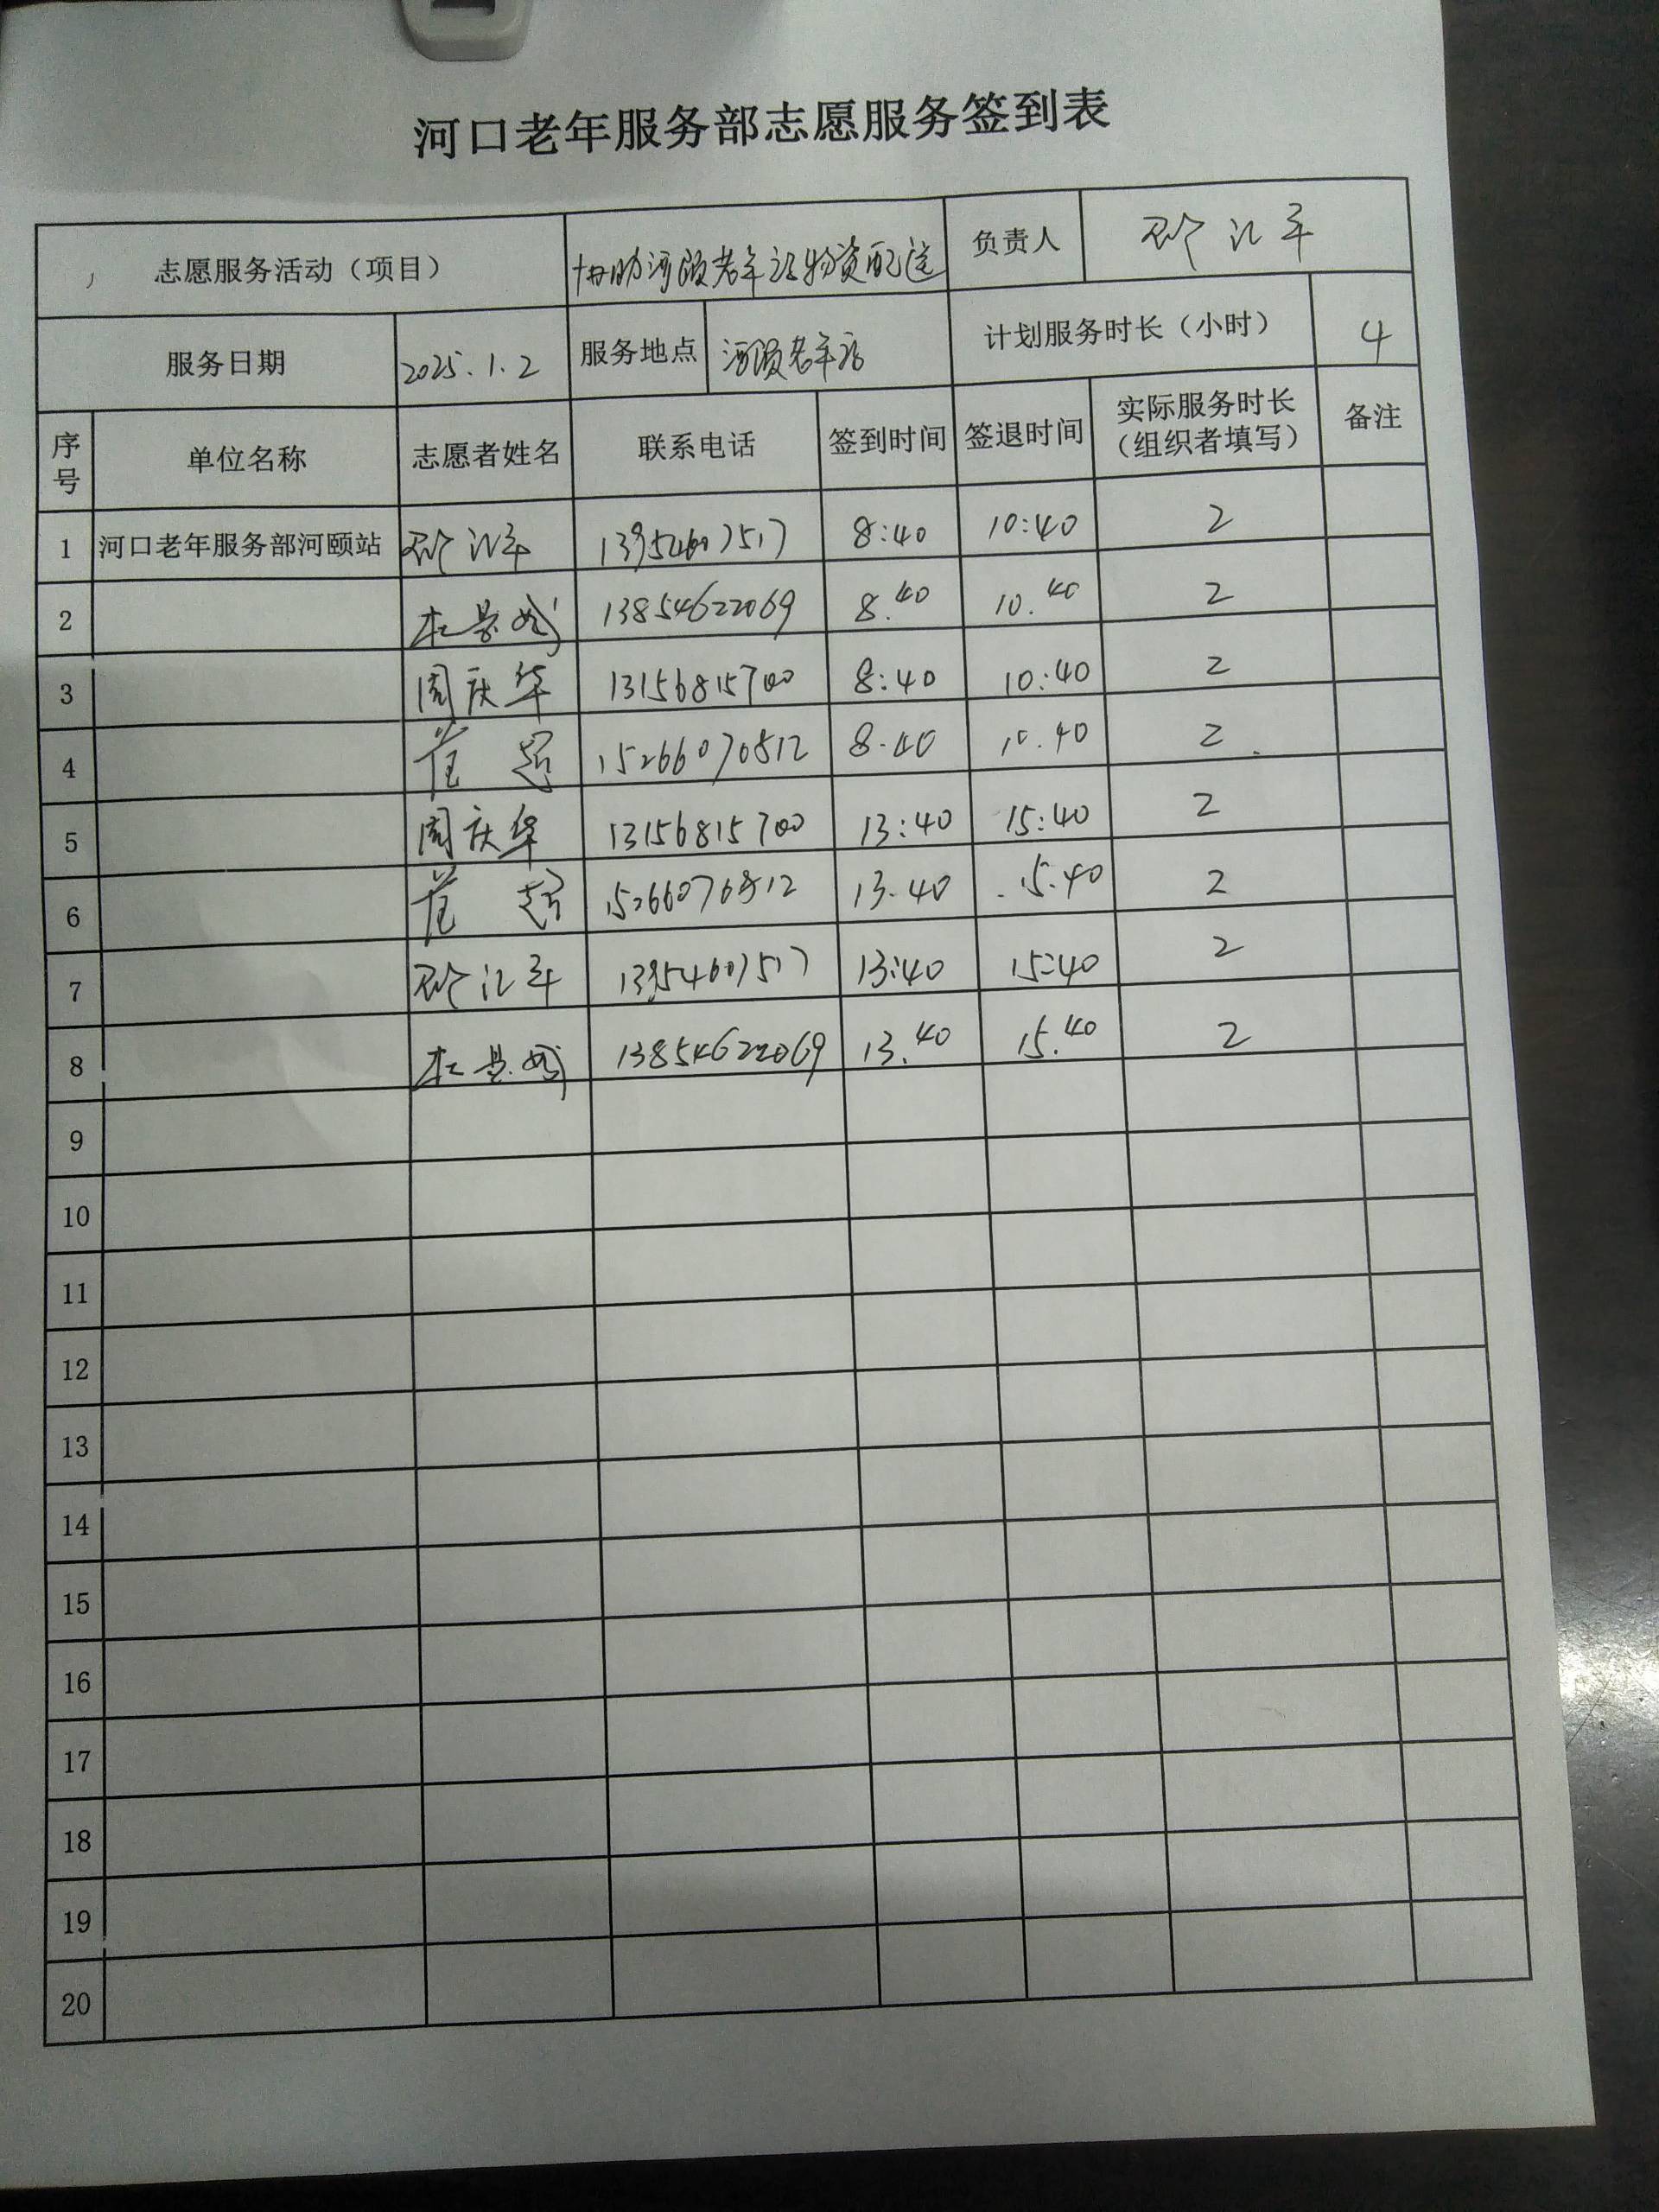 河口老年服务部志愿服务签到表
志愿服务活动（项目） 协助河颐老年站物资配送 负责人
服务日期 2025.1.2 服务地点 河颐老年站 计划服务时长（小时） 4
序号 单位名称 志愿者姓名 联系电话 签到时间 签退时间 实际服务时长（组织者填写） 备注
1 河口老年服务部河颐站 13954607517 8:40 10:40 2
2 13854622069 8.40 10.40 2
3 周庆华 13156815700 8:40 10:40 2
4 范 超 15266070812 8.40 10.40 2
5 周庆华 13156815700 13:40 15:40 2
6 范 超 15266070812 13.40 15.40 2
7 13954607517 13:40 15:40 2
8 13854622069 13.40 15.40 2
9
10
11
12
13
14
15
16
17
18
19
20